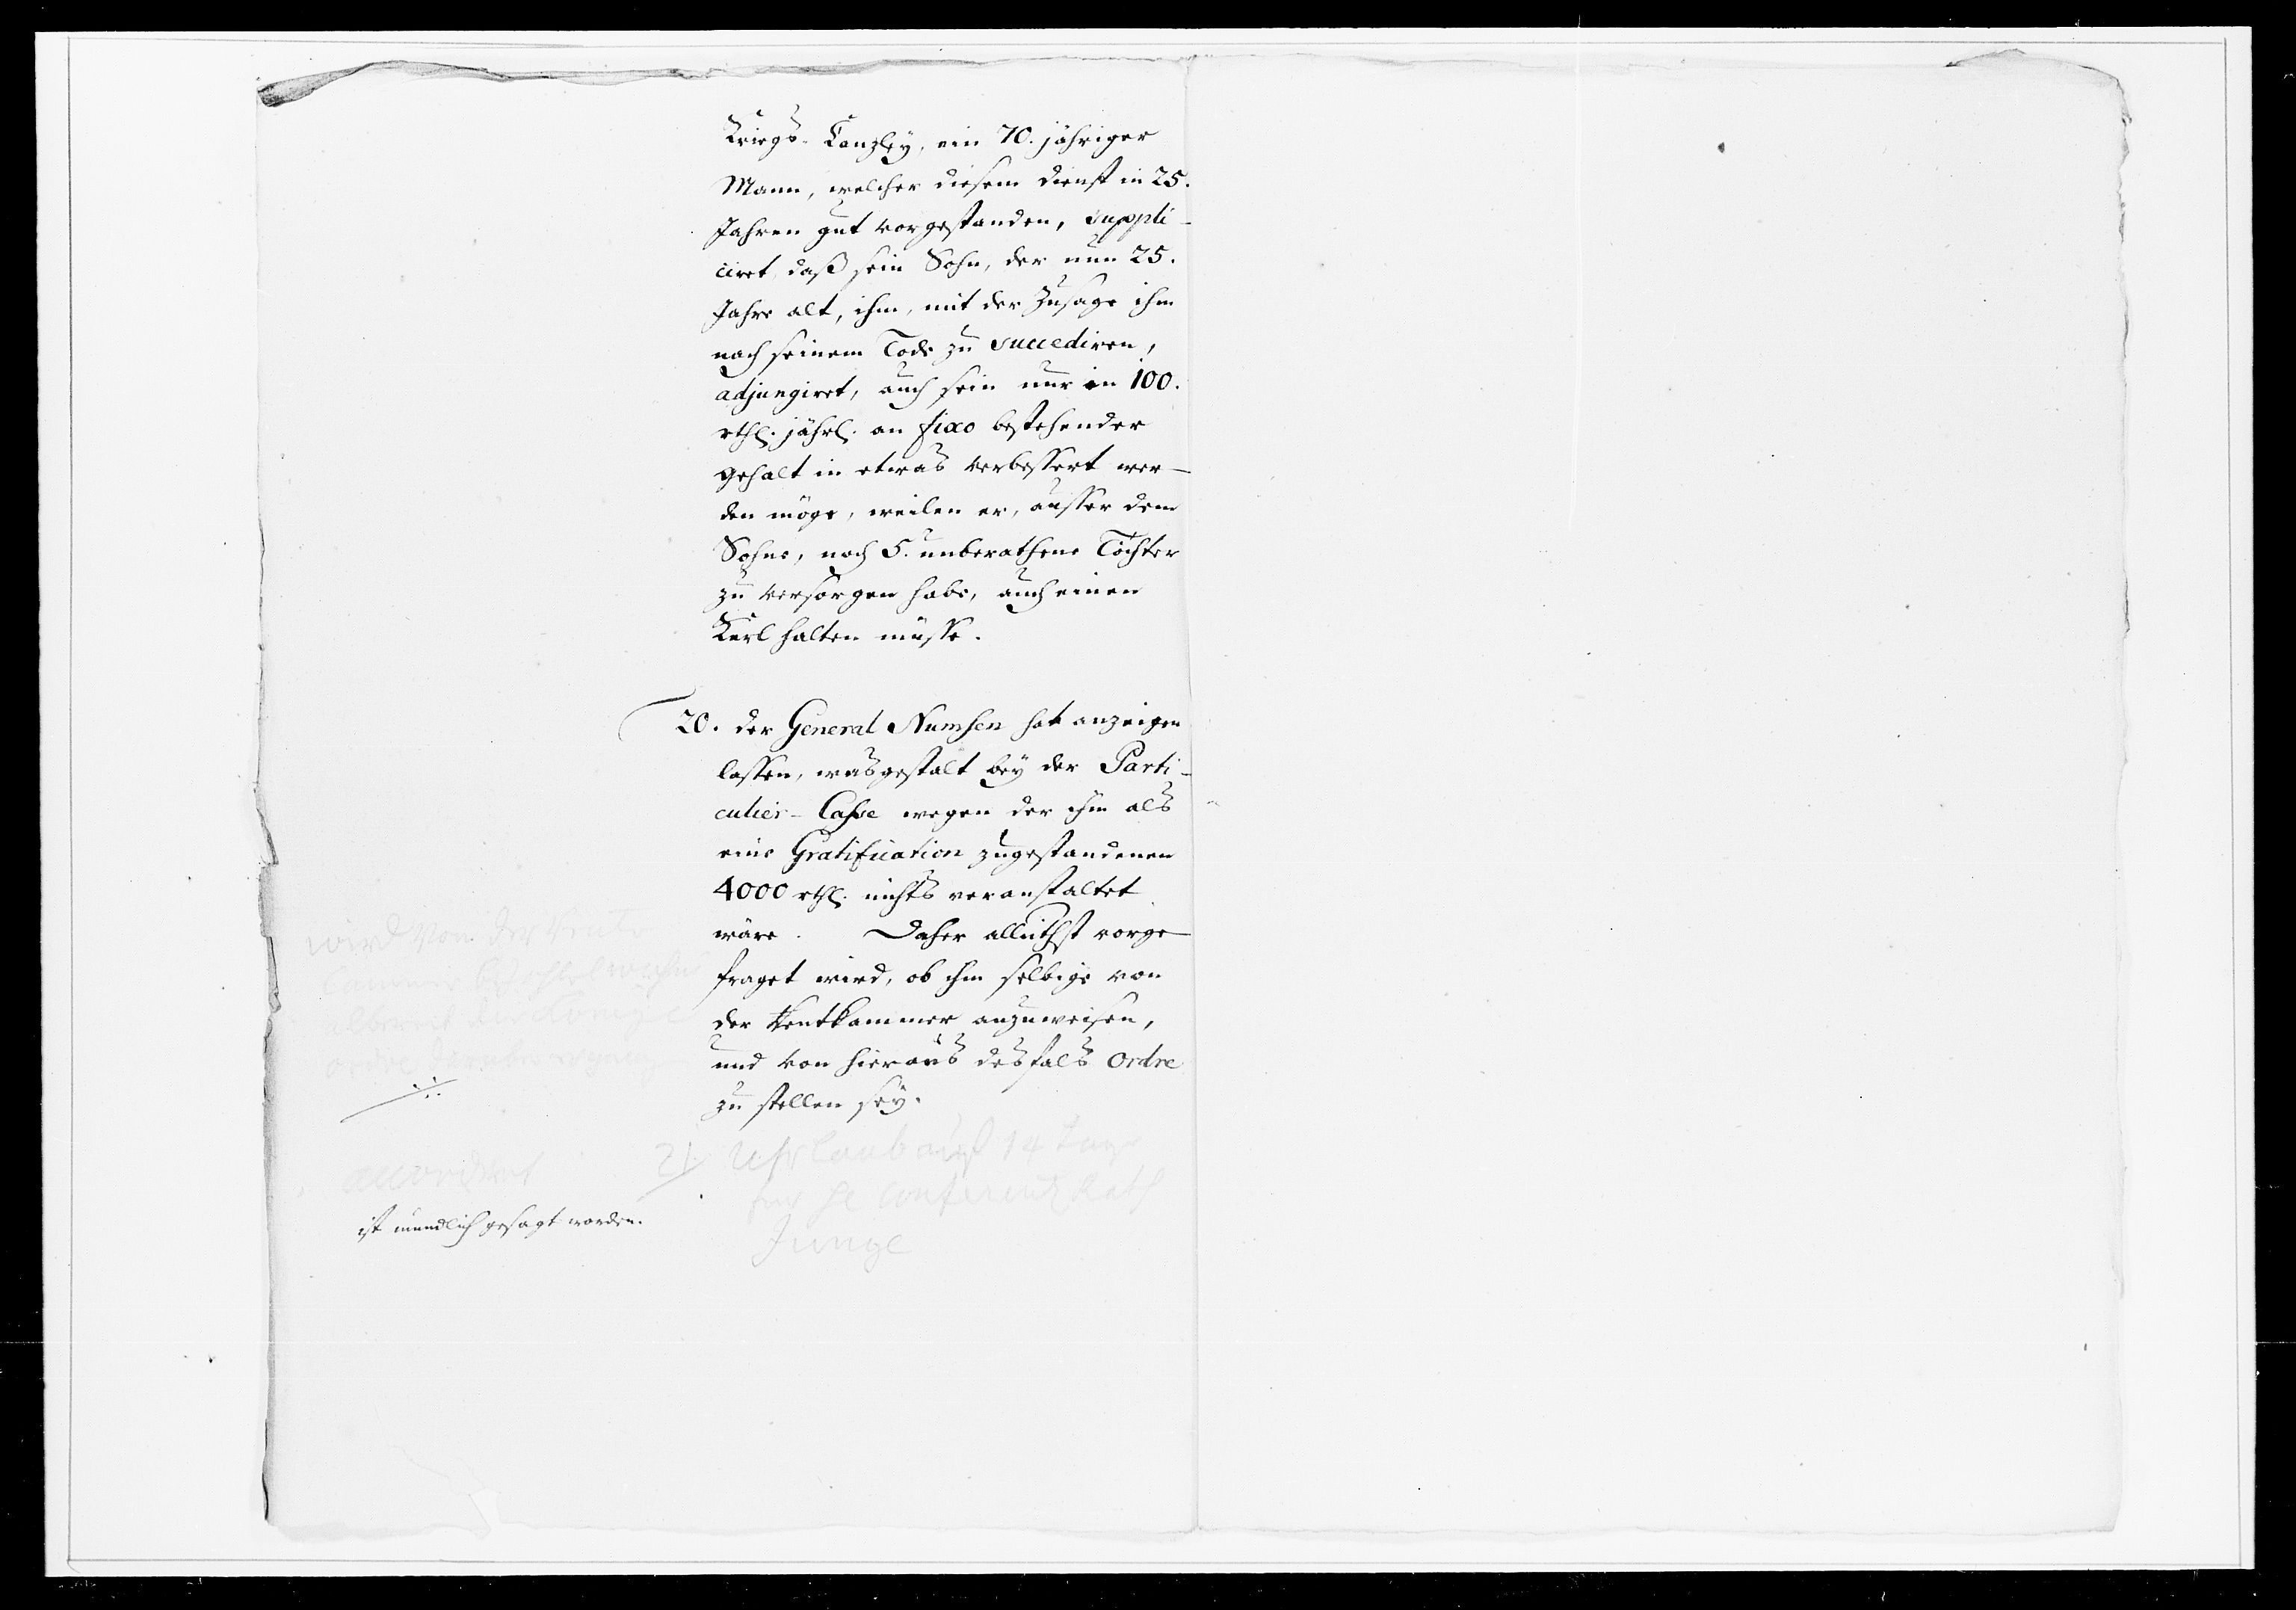 Kriegs-Canzley, ein 70. jähriger
Mann, welcher diesem Dienst in 25.
Jahren gut vorgestanden, suppli-
ciret, daß sein Sohn, der nun 25.
Jahre alt, ihm, mit der Zusage ihm
nach seinem Tode zu succediren,
adjungiret, auch sein nur in 100.
rthl. jährl. an fixo bestehender
Gehalt in etwas verbessert wer-
den möge, weilen er, ausser dem
Sohne, noch 5. unberathene Töchter
zu versorgen habe, auch einen
Kerl halten müsse.
20. Der General Numsen hat anzeigen
lassen, wasgestalt bey der Parti-
culier-Casse wegen der ihm als
eine Gratification zugestandenen
4000 rthl. nichts veranstaltet
wäre. Daher allerunthst vorge-
fraget wird, ob ihm selbige von
der Rentkammer anzuweisen,
und von hieraus desfals Ordre
zu stellen sey.
wird von der Rente
Cammer
ordre
accordirt
ist mündlich gesagt worden.
21 Uhrlaub auf 14 Tage
für H Conferentz Rath
Junge